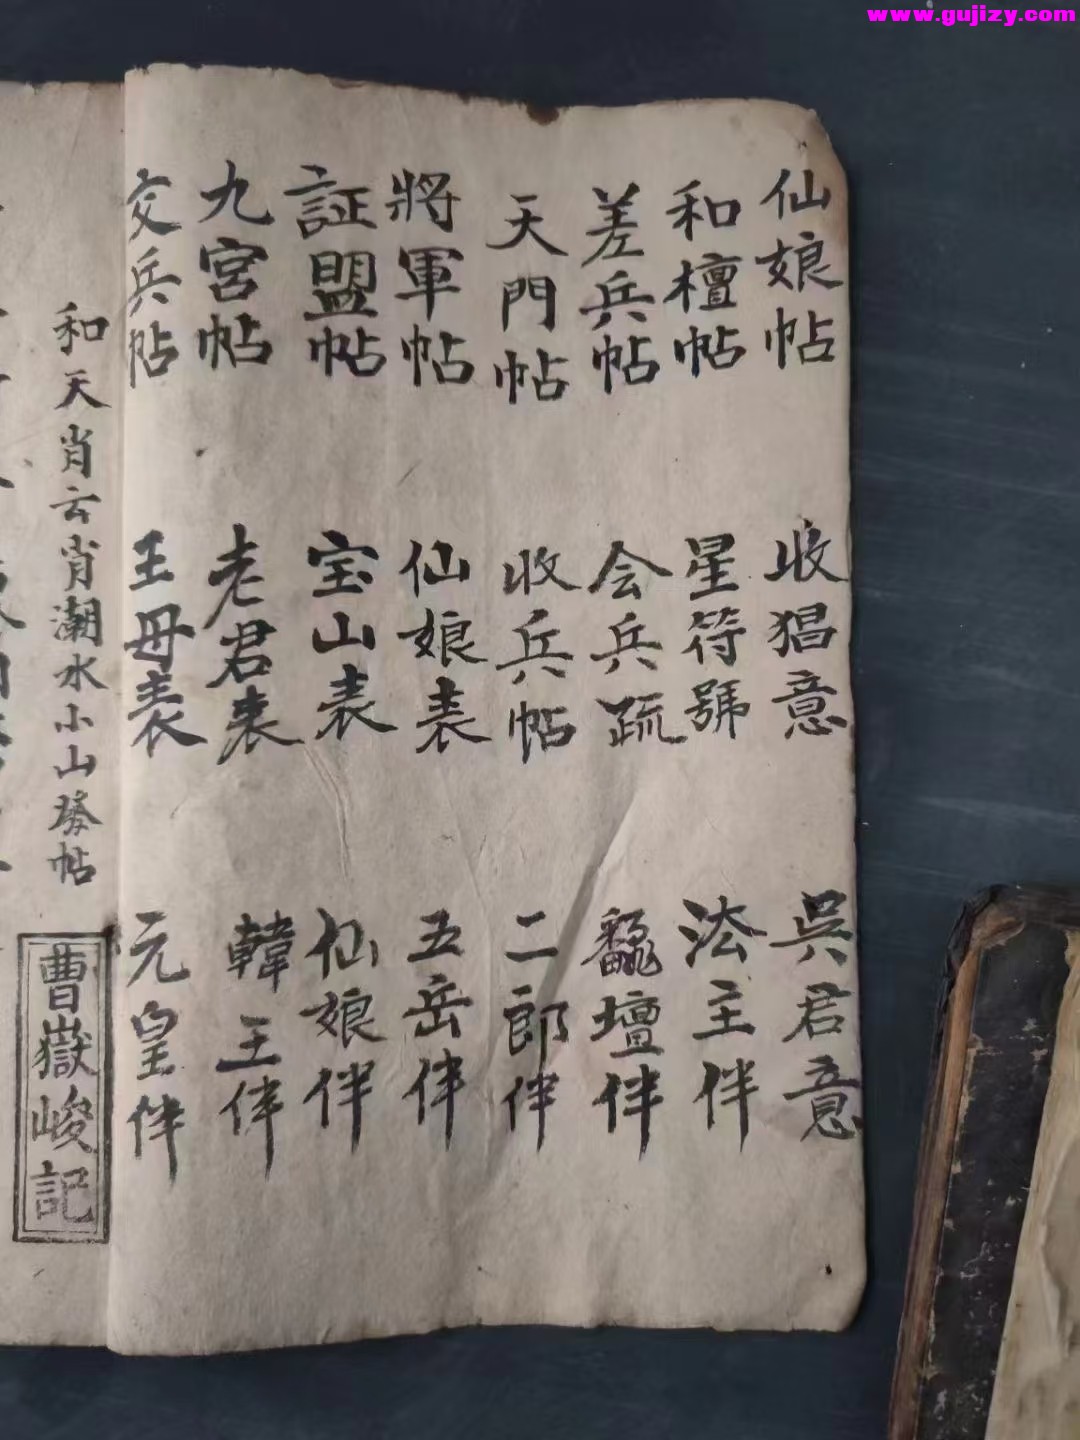 www.gujizy.com
仙娘帖 收猖意 吳君意
和檀帖 星符號 法主伴
差兵帖 会兵疏 壇伴
天門帖 收兵帖 二郎伴
將軍帖 仙娘表 五岳伴
証盟帖 宝山表 仙娘伴
九宮帖 老君表 韓王伴
交兵帖 王母表 元皇伴
和天肖云肖潮水小山帖
曹嶽峻記